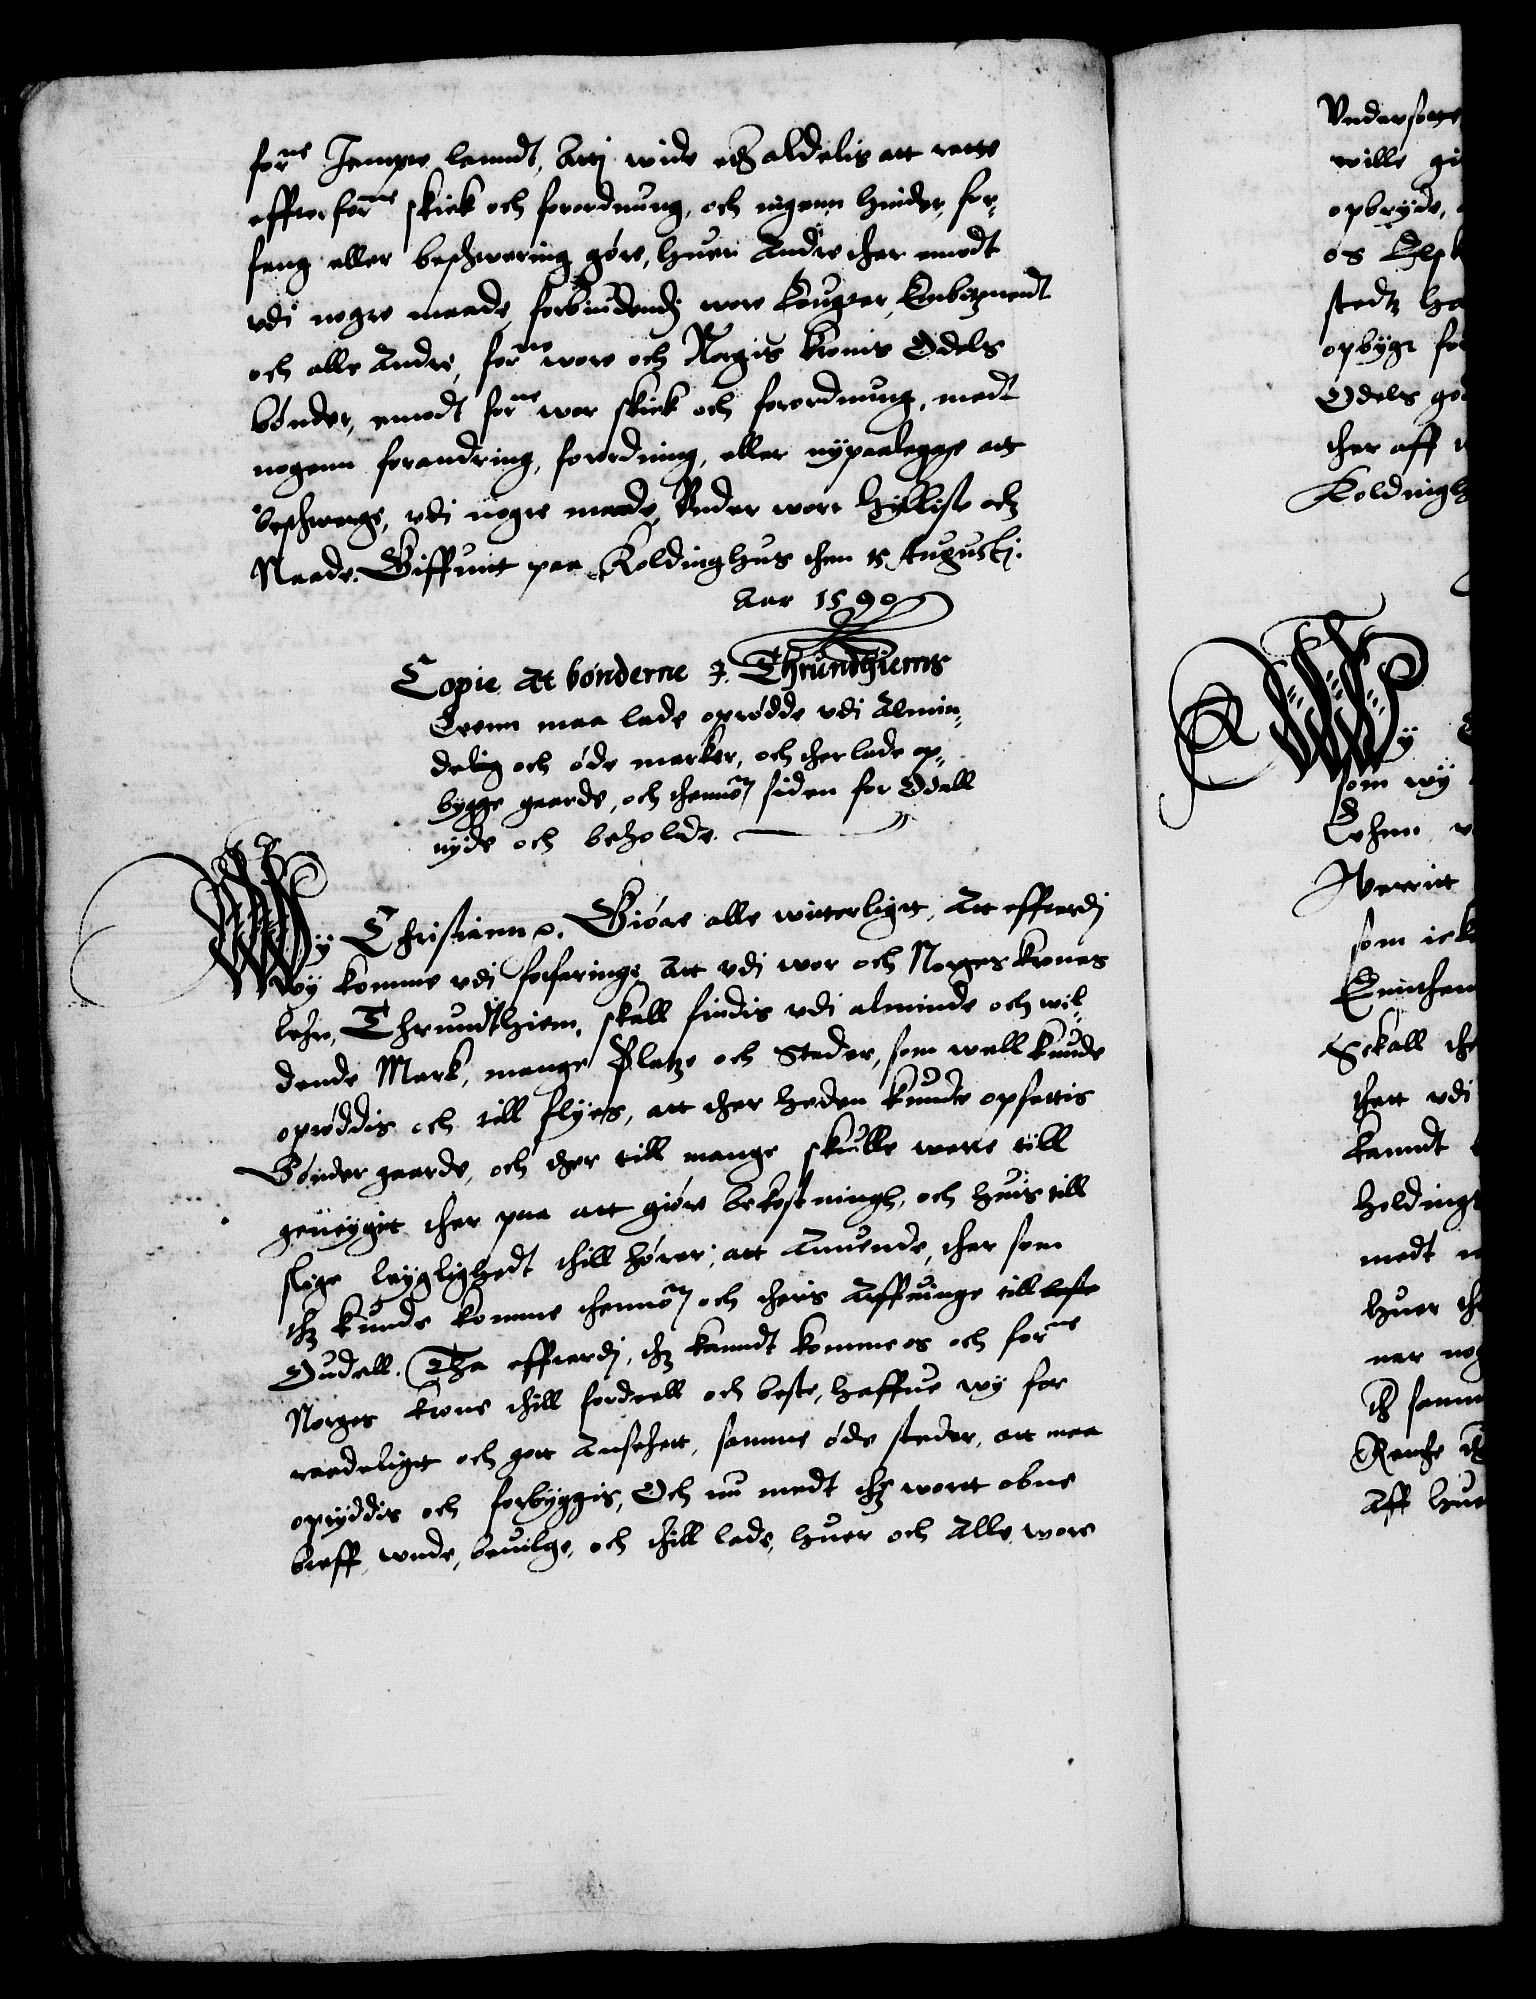 forne Jempte lanndt, Atti wide eder aldelis att rette
effter forne skick och forordnung, och ingenn hinder, for-
fang eller beschwering giøre, huer Andre ther emodt
vdi nogre maade, forbiudendj wore Fougter, Embitzmendt
och alle Andre, forne wore och Norgis Kronis Odels
bønder, emodt forne wor skick och forordnung, medt
nogenn forandring, forordning, eller nypaalegge att
beschwerge, vdi nogre maade, Vnder wort hylliste och
Naade. Giffuit paa Koldinghus then 15 Augustj.
Aar 1590
Copie At bønderne J. Thrundhiems
Leenn maa lade oprødde vdi Almin-
delig och øde marker, och ther lade op-
bygge gaarde, och thennom siden for Odell
nyde och beholde.
Wy Christiann etc. Giøre alle witterligt, Att effterdj
wy komme vdi forfaringe, Att vdi wor och Norges Krones
lehn, Thrundthiem, skall findis vdi alminde och wil-
dende Mark, mange Platze och Steder, som well kunde
oprøddis och till flyes, att ther heden kunde opsettis
Bønder gaarde, och ther till mange skulle were till
geneygtt ther paa att giøre bekostningh, och huis till
slige leyglighedt thill hører, att Anuende, ther som
thz kunde komme thennom och theris Arffuinge till beste
Oudell. Tha effterdj, thz kanndt komme os och forne
Norges Krone thill fordeell och beste, haffue wy for
raadeligtt och gott Ansehett, samme øde steder, att maa
opryddis och forbyggis, Och nu medt thz wortt obne
breff, wnde, beuilge, och thill lade, huer och Alle wore
Vndersotte
wille
opbryde,
os
stedtz
opbygt
Odels
ther aff
Wy
som wy
Lehnn
som
Skall
thett vdi
kanndt
holdingh
medt
huer
ner
thz samm
Aff